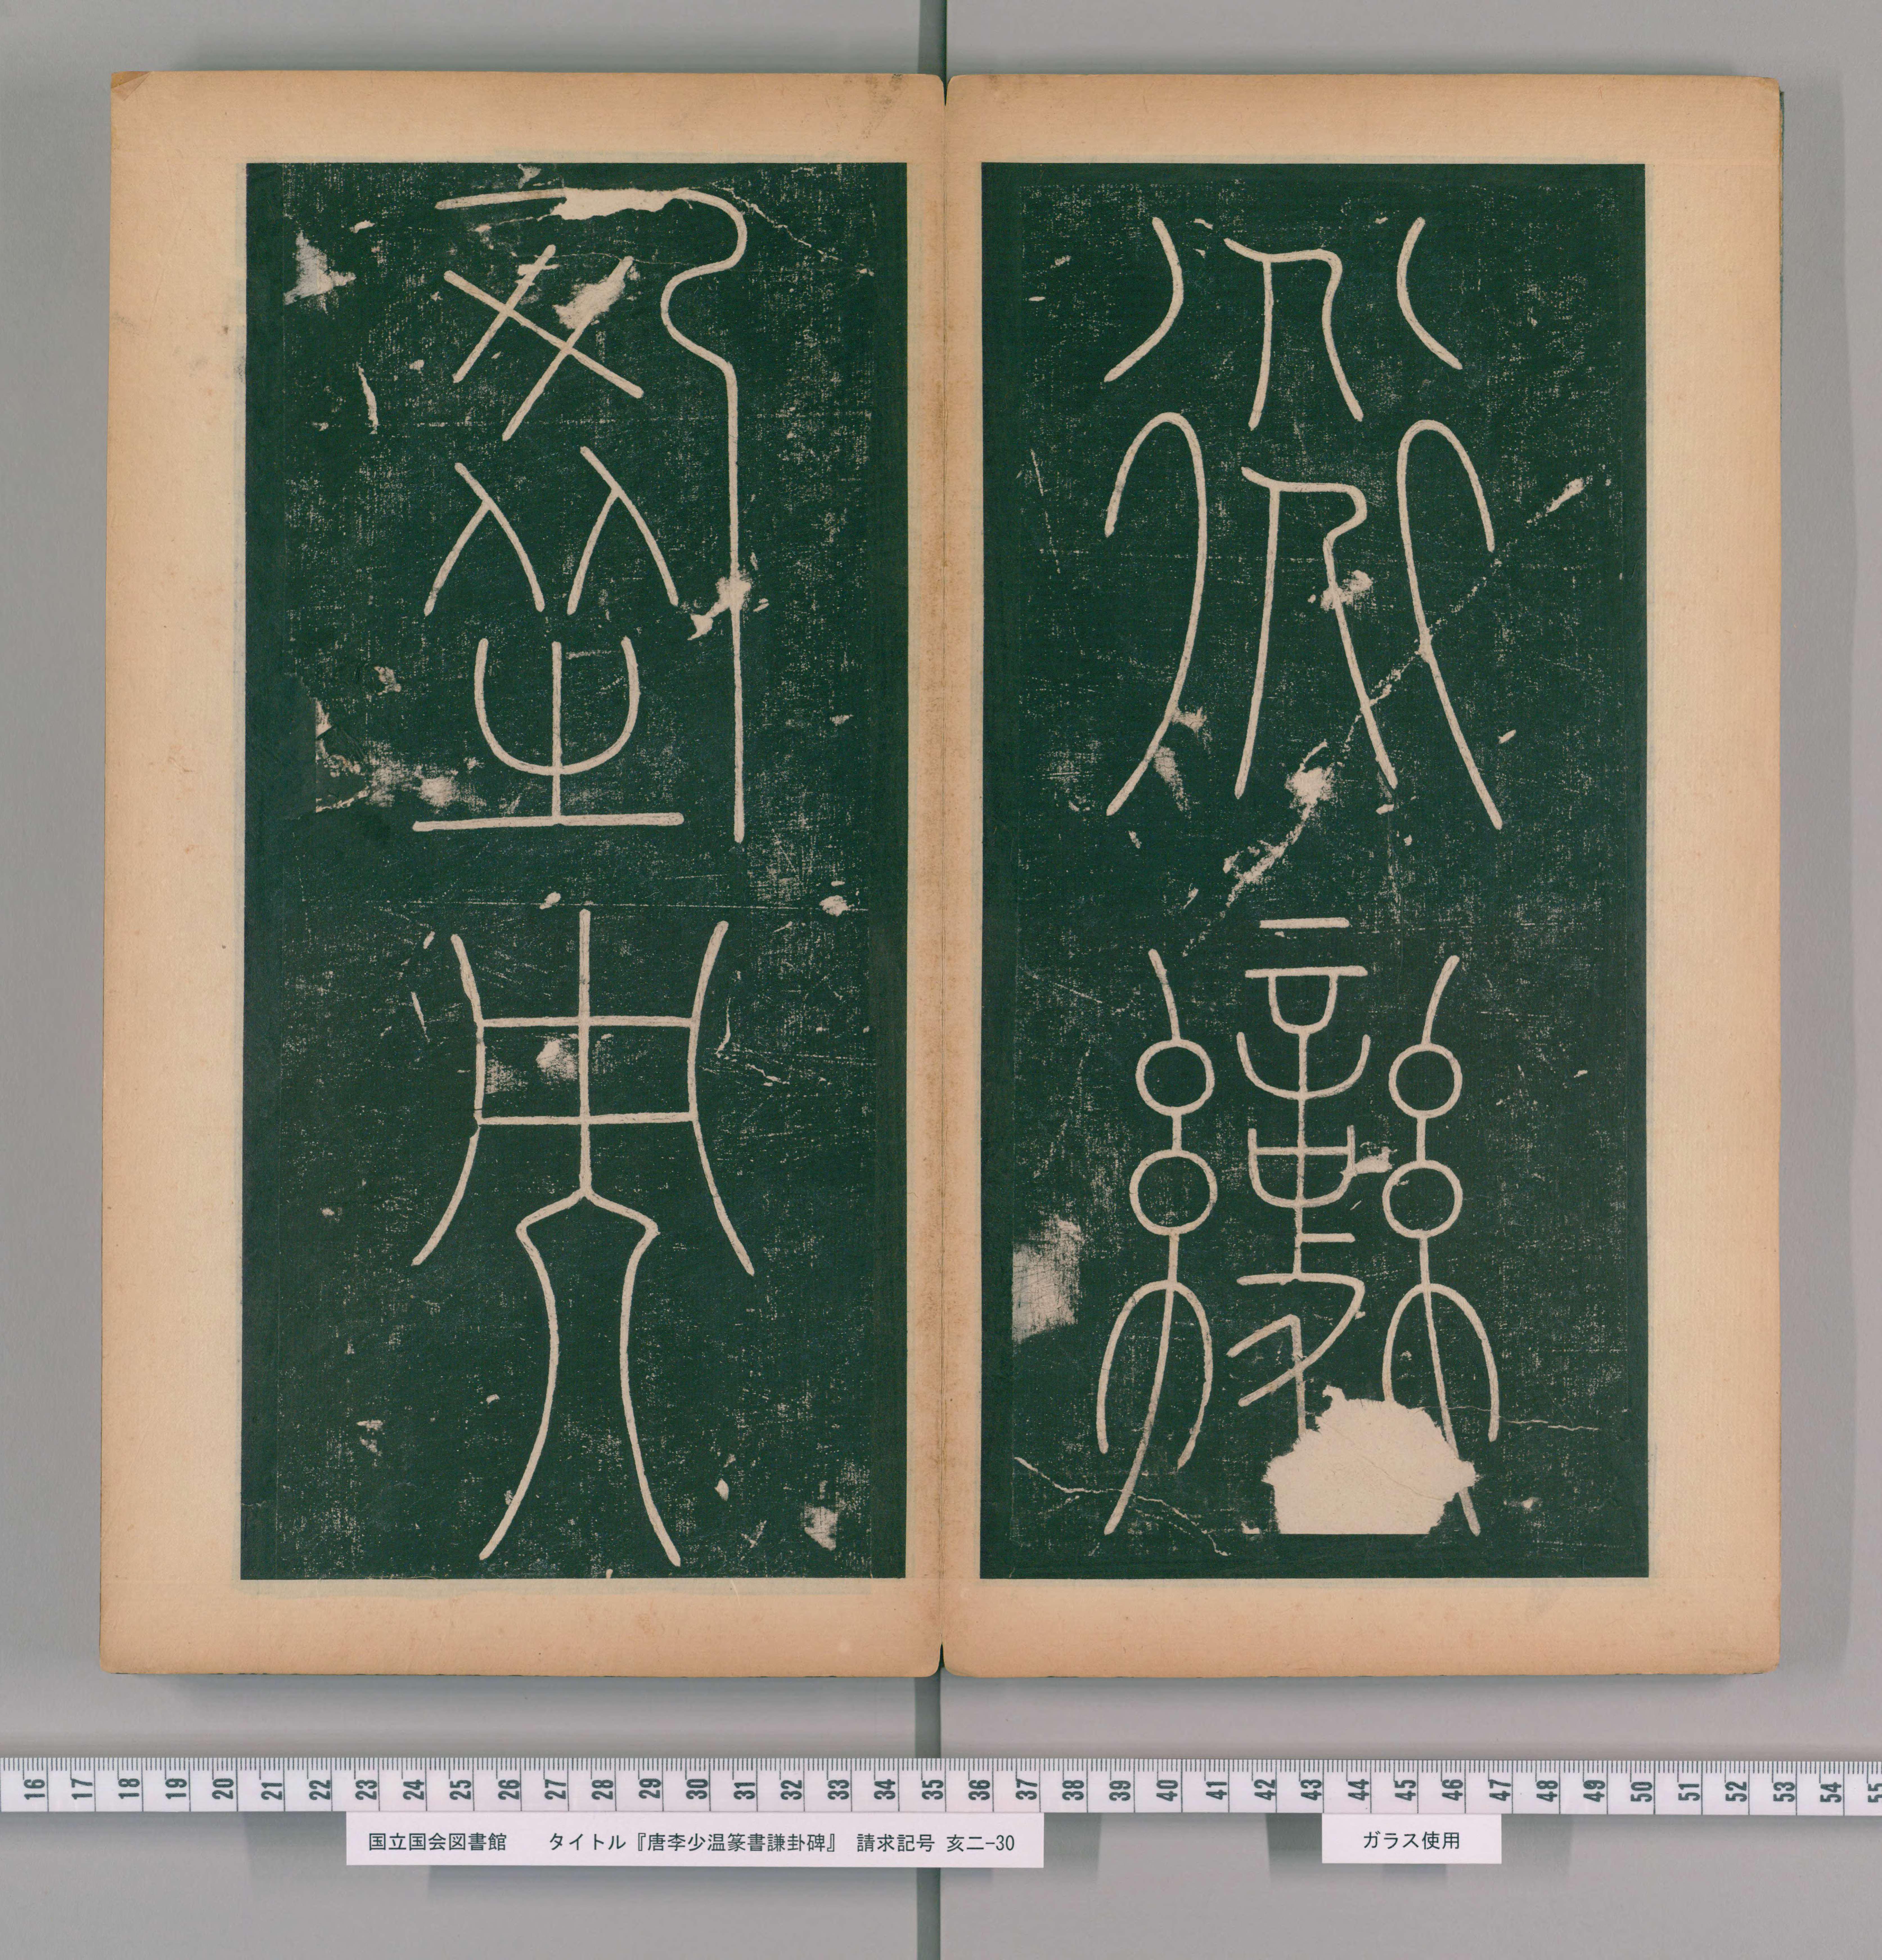 道變
盈而
16 17 18 19 20 21 22 23 24 25 26 27 28 29 30 31 32 33 34 35 36 37 38 39 40 41 42 43 44 45 46 47 48 49 50 51 52 53 54 55
国立国会図書館 タイトル『唐李少温篆書謙卦碑』 請求記号 亥二-30
ガラス使用